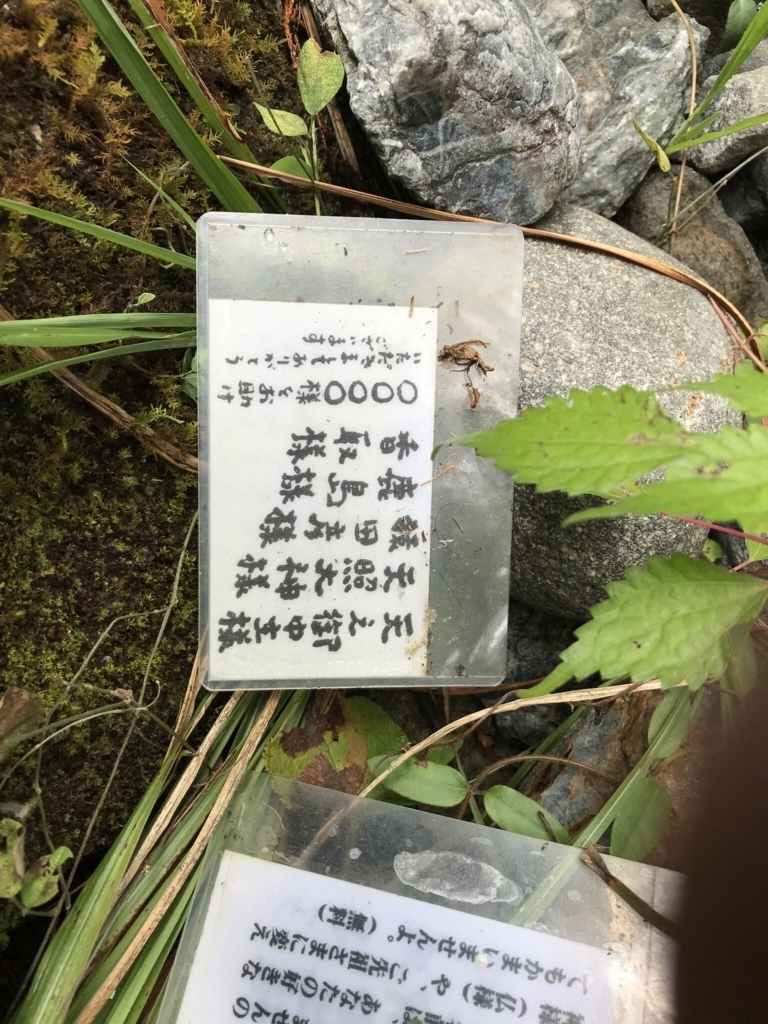 天之御中主様
天照大神様
猿田彦様
鹿島様
香取様
○○○○様とお助け
いただきましてありがとう
ございます
ませんの
あなたの好きな
様(仏様)や、ご先祖さまに変え
てもかまいませんよ。(無料)